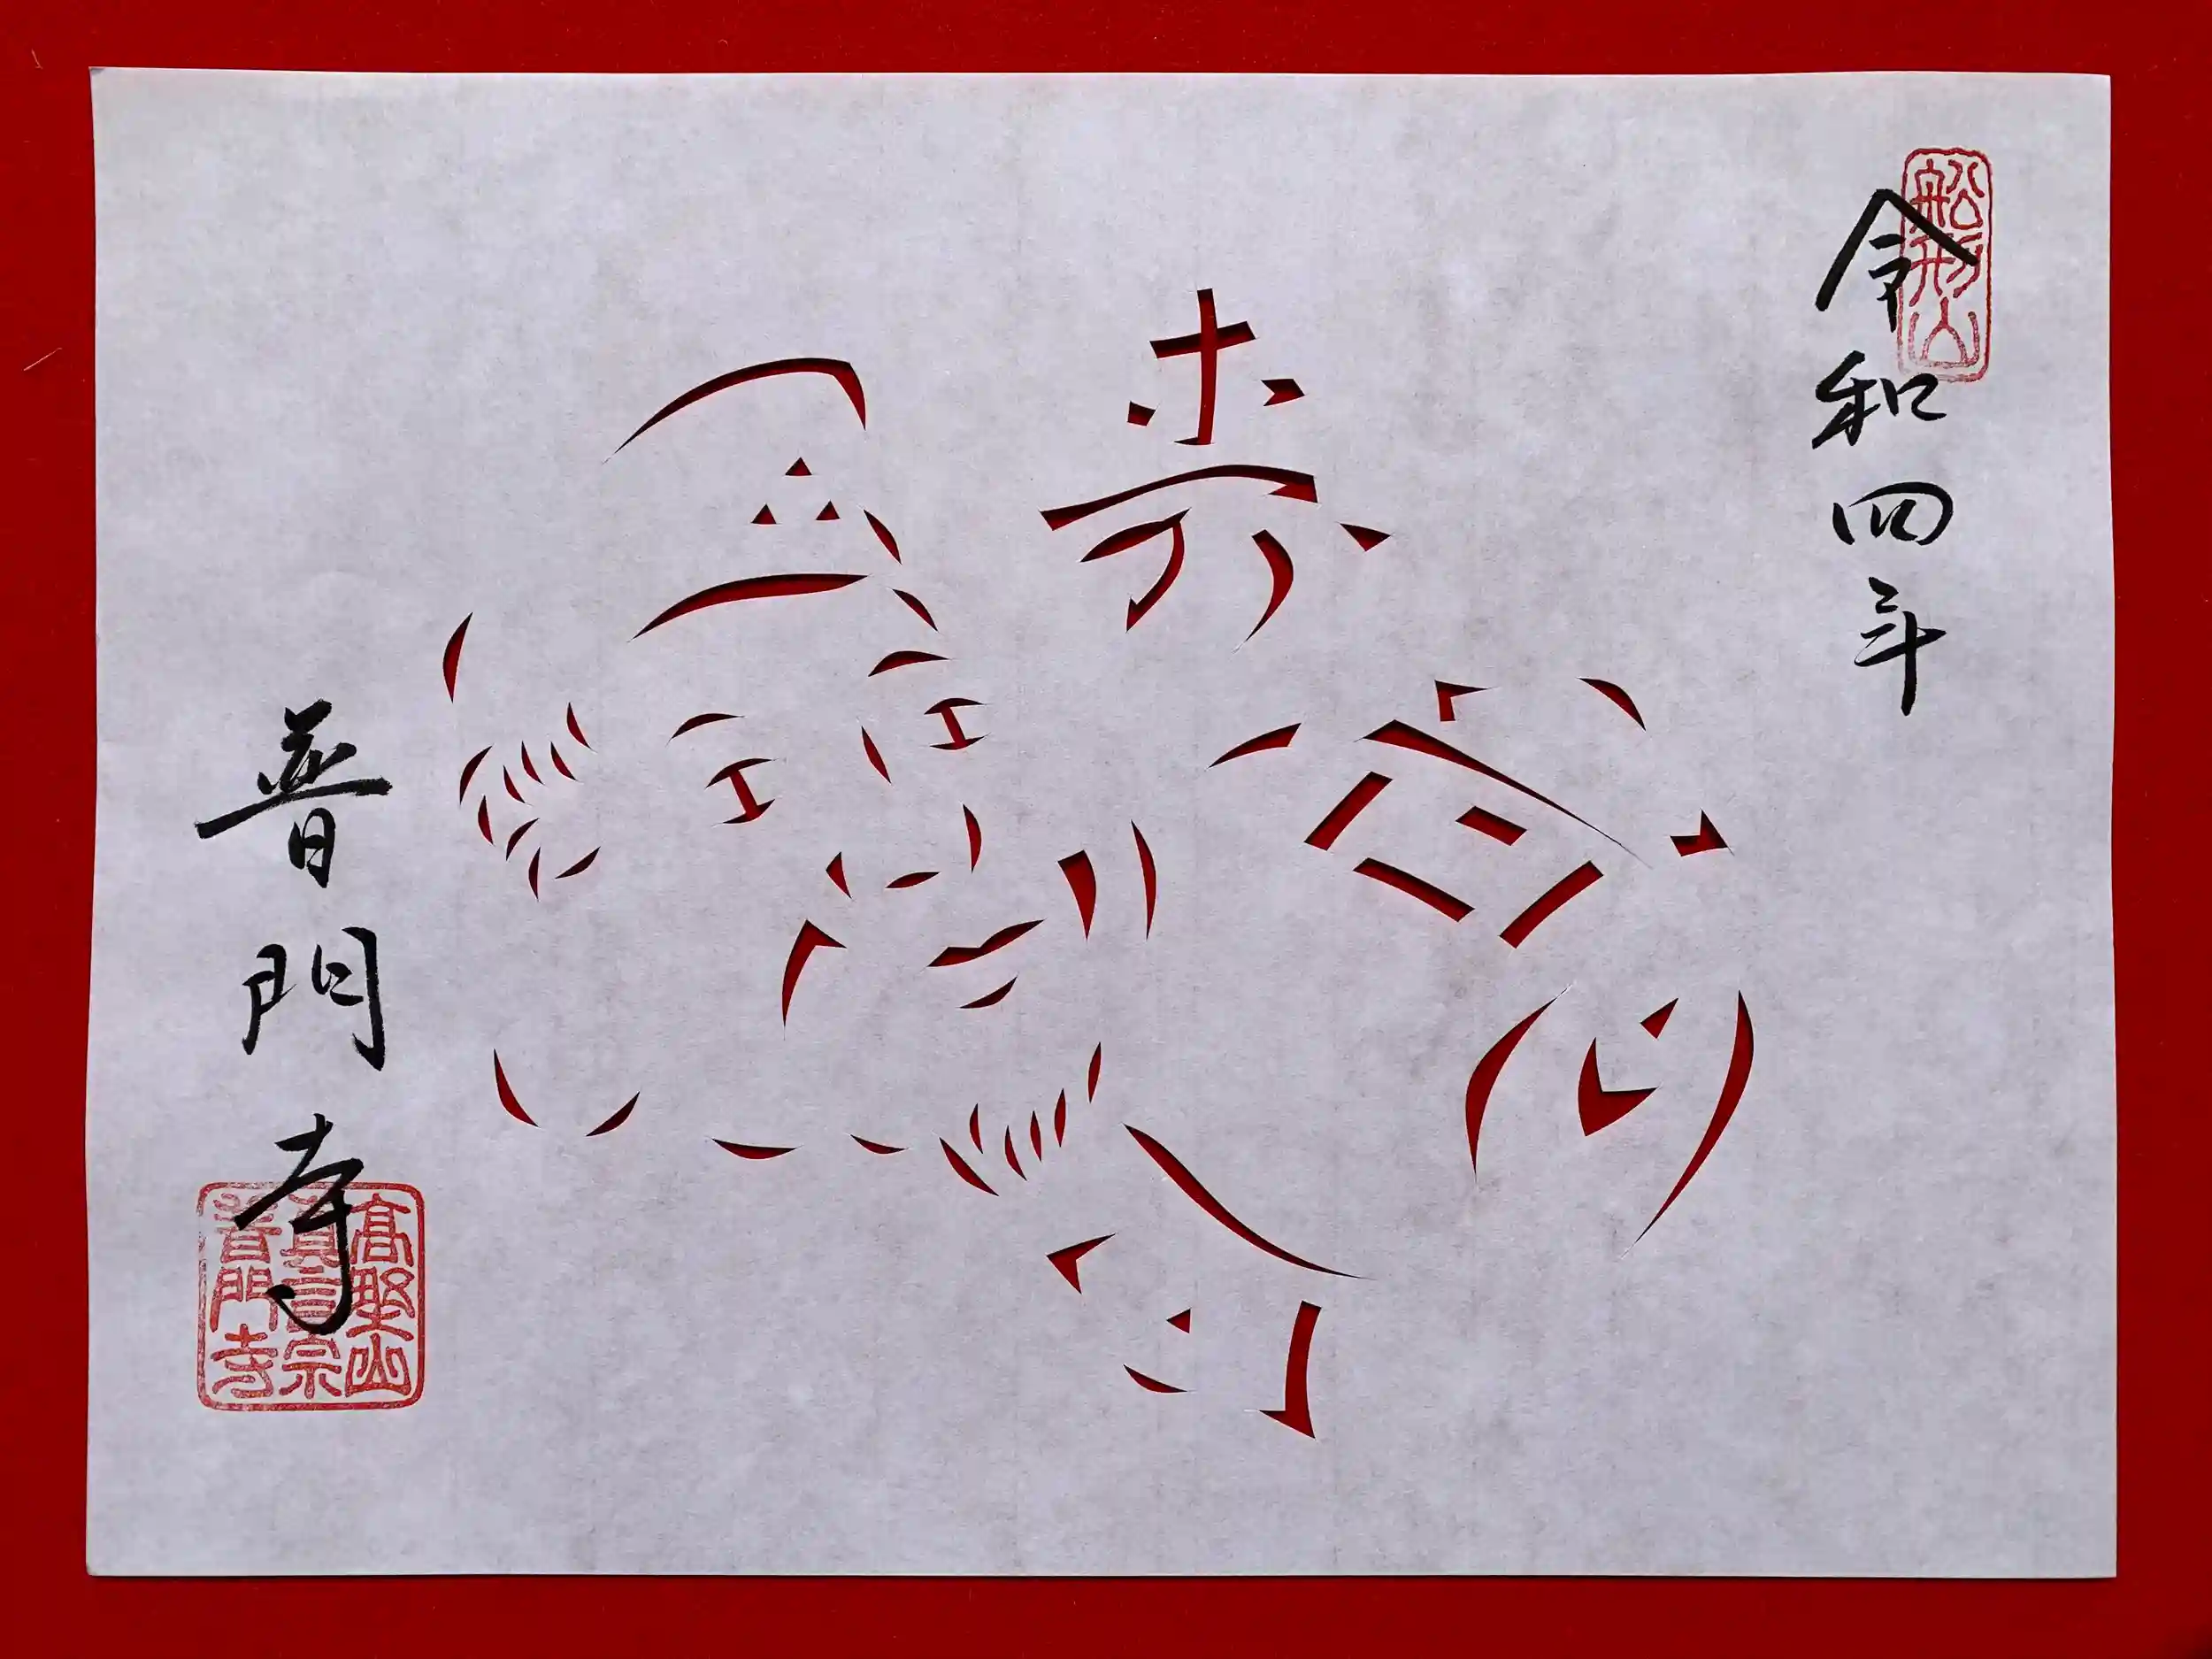 船形山
令和四年
普門寺
高野山
真言宗
普門寺